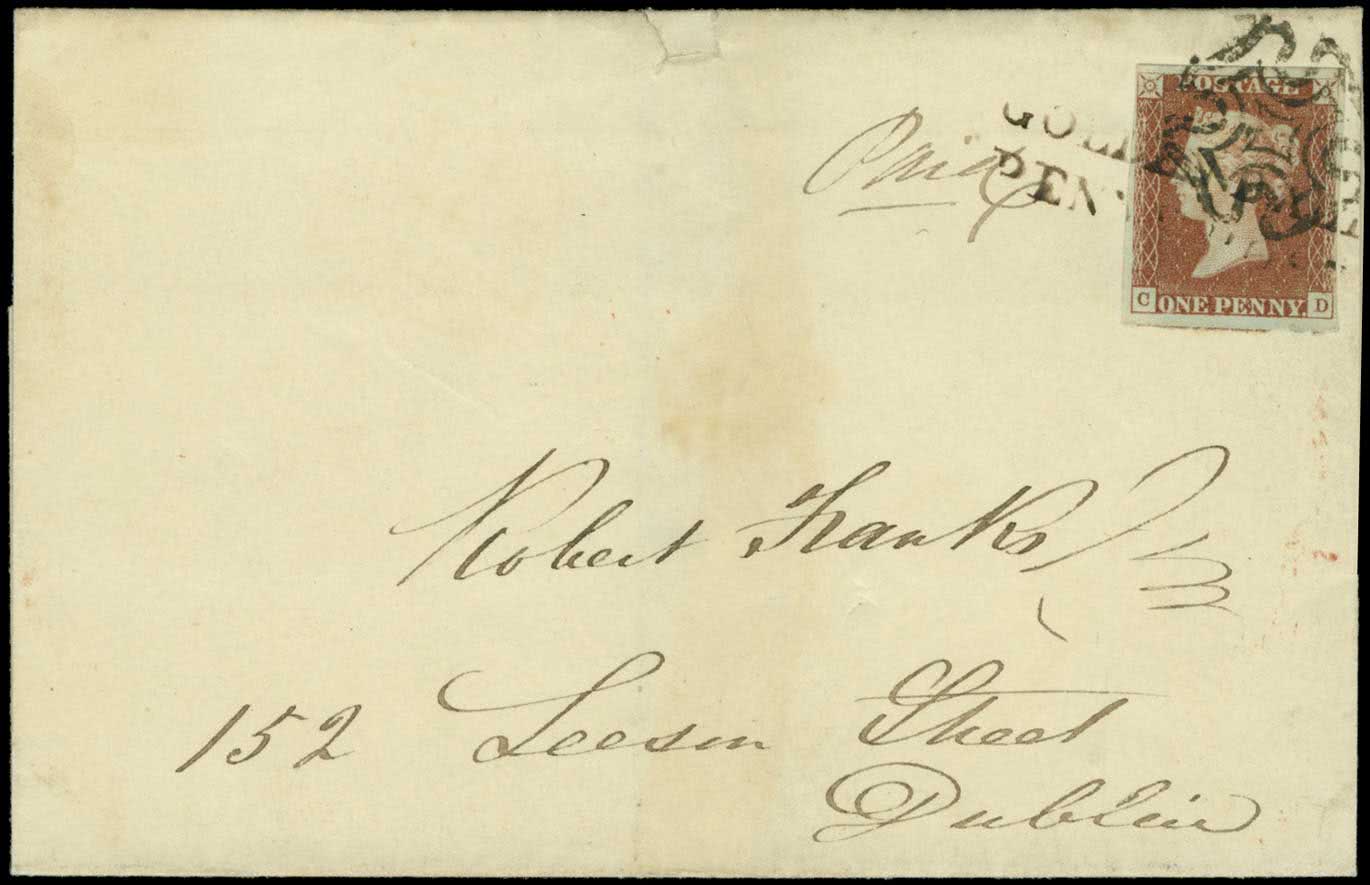 POSTAGE
Paid
GOL
PEN
C ONE PENNY. D
Robert Franks
152 Leeson Street
Dublin